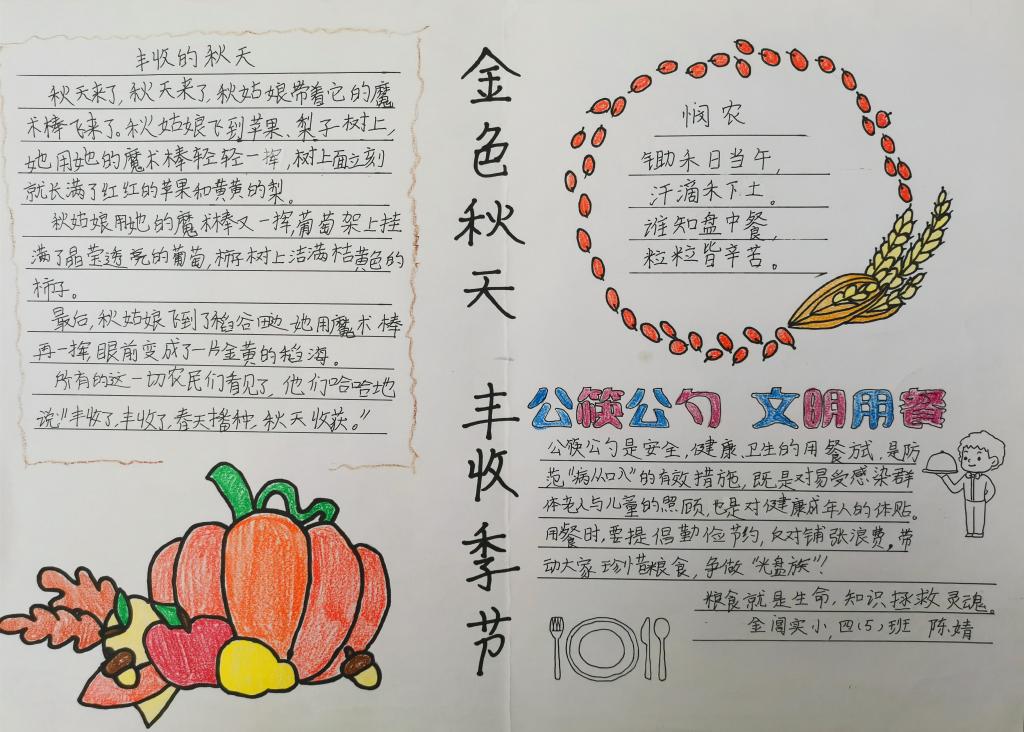 丰收的秋天
秋天来了,秋天来了,秋姑娘带着它的魔
术棒飞来了。秋姑娘飞到苹果、梨子树上,
她用她的魔术棒轻轻一挥,树上面立刻
就长满了红红的苹果和黄黄的梨。
秋姑娘用她的魔术棒又一挥,葡萄架上挂
满了晶莹透亮的葡萄,柿子树上洁满桔黄色的
柿子。
最后,秋姑娘飞到了稻谷田边,她用魔术棒
再一挥,眼前变成了一片金黄的稻海。
所有的这一切农民们看见了,他们哈哈地
说“丰收了,丰收了,春天播种,秋天收获。”
金色秋天 丰收季节
悯农
锄禾日当午,
汗滴禾下土。
谁知盘中餐,
粒粒皆辛苦。
公筷公勺 文明用餐
公筷公勺是安全,健康,卫生的用餐方式,是防
范“病从口入”的有效措施,既是对易受感染群
体老人与儿童的照顾,也是对健康成年人的体贴。
用餐时,要提倡勤俭节约,反对铺张浪费,带
动大家珍惜粮食,争做“光盘族”!
粮食就是生命,知识拯救灵魂。
金阊实小,四(5)班 陈婧